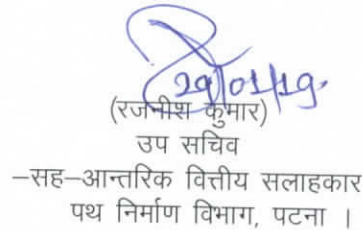 29/01/19.
(रजनीश कुमार)
उप सचिव
–सह–आन्तरिक वित्तीय सलाहकार
पथ निर्माण विभाग, पटना ।